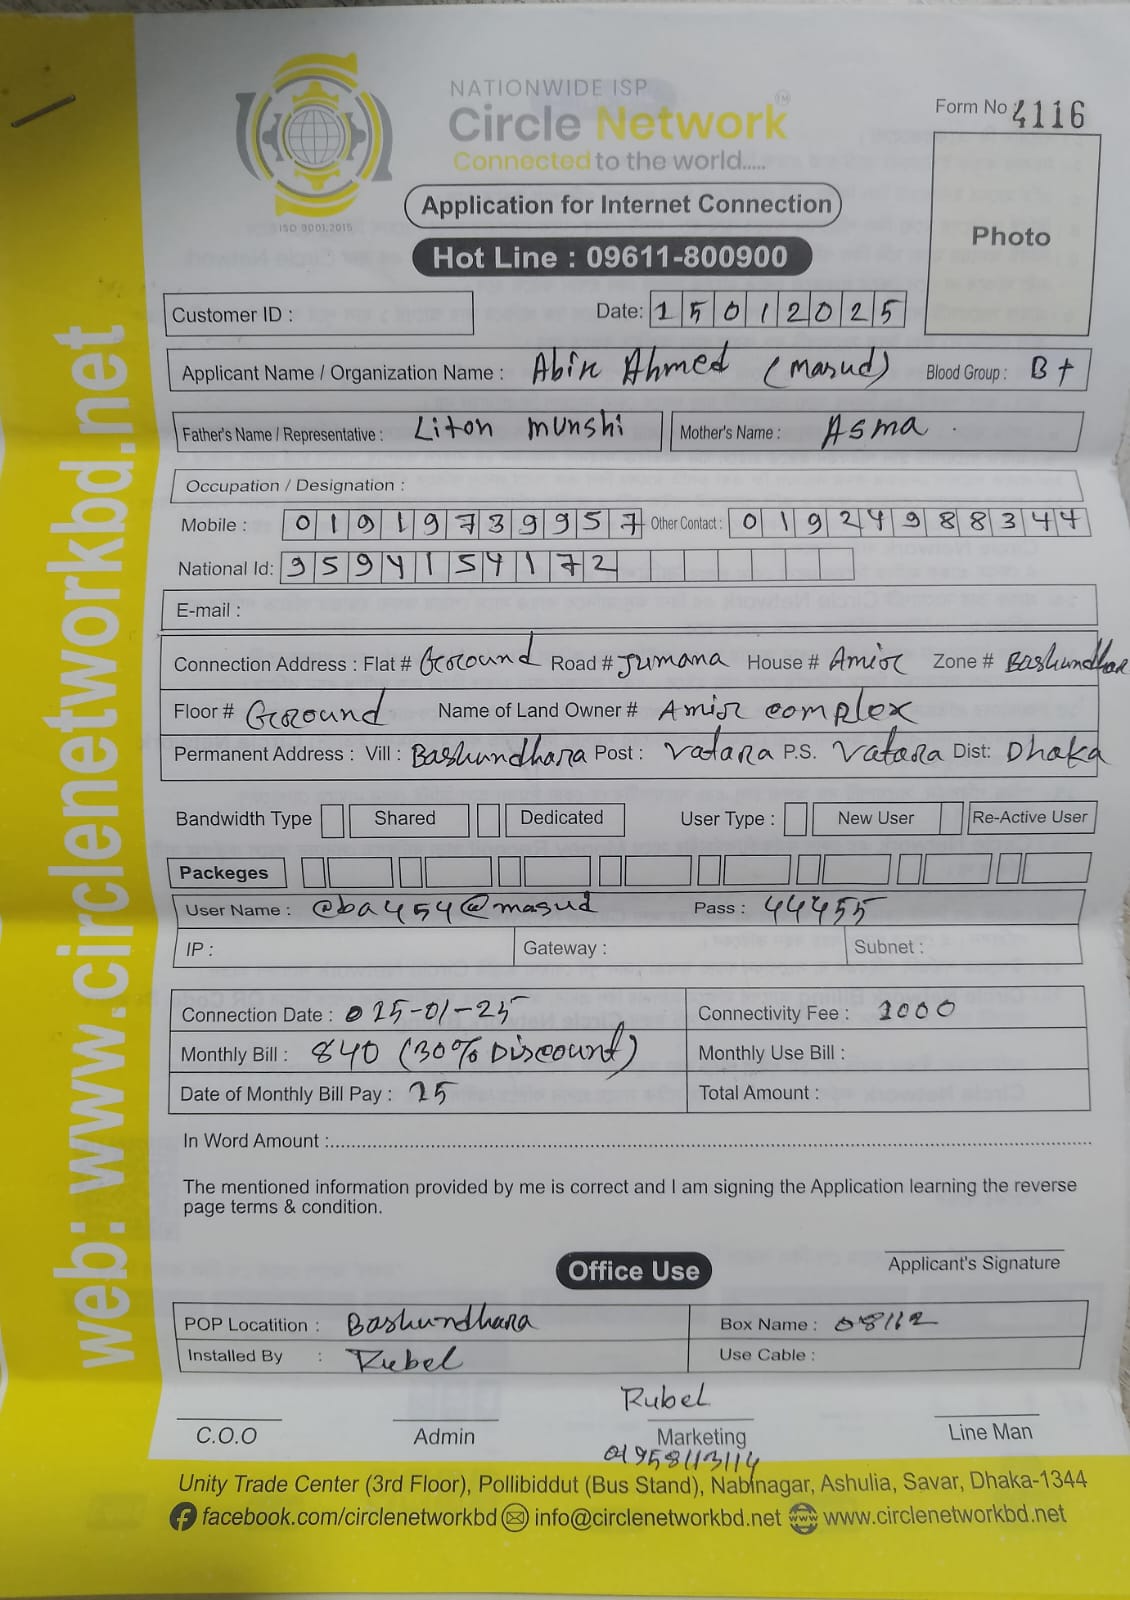 NATIONWIDE ISP
Circle Network™
Connected to the world.....
ISO 9001:2015
Form No 4116
Application for Internet Connection
Hot Line : 09611-800900
Photo
Customer ID :
Date: 15012025
Applicant Name / Organization Name : Abir Ahmed (Masud) Blood Group : B+
Father's Name / Representative : Liton Munshi Mother's Name : Asma
Occupation / Designation :
Mobile : 01919739957 Other Contact : 01924988344
National Id: 9594154172
E-mail :
Connection Address : Flat # Ground Road # Jumana House # Amir Zone # Bashundhar
Floor # Ground Name of Land Owner # Amir complex
Permanent Address : Vill : Bashundhara Post : Vatara P.S. Vatara Dist: Dhaka
Bandwidth Type Shared Dedicated User Type : New User Re-Active User
Packeges
User Name : @ba454@masud Pass : 44455
IP : Gateway : Subnet :
Connection Date : 15-01-25 Connectivity Fee : 1000
Monthly Bill : 840 (30% Discount) Monthly Use Bill :
Date of Monthly Bill Pay : 15 Total Amount :
In Word Amount :
The mentioned information provided by me is correct and I am signing the Application learning the reverse
page terms & condition.
Applicant's Signature
Office Use
POP Locatition : Bashundhara Box Name : 08112
Installed By : Rubel Use Cable :
Rubel
C.O.O Admin Marketing Line Man
01958113114
Unity Trade Center (3rd Floor), Pollibiddut (Bus Stand), Nabinagar, Ashulia, Savar, Dhaka-1344
facebook.com/circlenetworkbd info@circlenetworkbd.net www.circlenetworkbd.net
web: www.circlenetworkbd.net